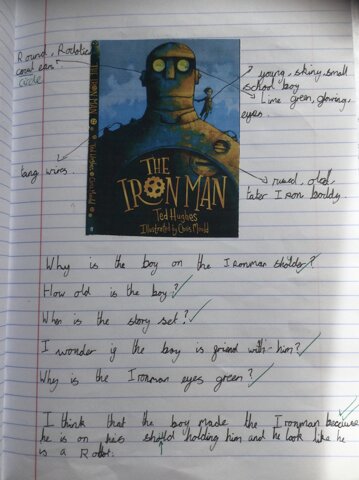 Round, Robotic
young, skiny, small
school boy
Lime green, glowing,
eyes.
THE IRON MAN
Ted Hughes
THE
IRON MAN
Ted Hughes
Illustrated by Chris Mould
wires.
Iron
Why is the boy on the Ironman sholder?
How old is the boy?
When is the story set?
I wonder if the boy is friend with him?
Why is the Ironman eyes green?
I think that the boy made the Ironman because
he is on his holding him and he look like he
is a Robot.